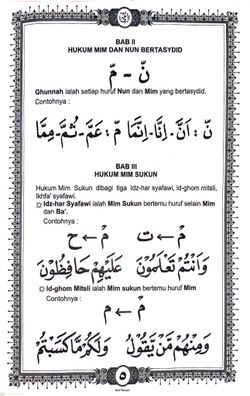 BAB II
HUKUM MIM DAN NUN BERTASYDID
نّ - مّ
Ghunnah ialah setiap huruf Nun dan Mim yang bertasydid.
Contohnya :
نّ : اَنَّ - اِنَّا - اِنَّمَا مّ : عَمَّ - ثُمَّ - مِمَّا
BAB III
HUKUM MIM SUKUN
Hukum Mim Sukun dibagi tiga Idz-har syafawi, Id-ghom mitsli, Ikhfa' syafawi.
Idz-har Syafawi ialah Mim Sukun bertemu huruf selain Mim dan Ba'.
Contohnya :
مْ ← ت مْ ← ح
وَاَنْتُمْ تَعْلَمُوْنَ عَلَيْهِمْ حَافِظُوْنَ
Id-ghom Mitsli ialah Mim sukun bertemu huruf Mim
Contohnya :
مْ ← م
وَمِنْهُمْ مَّنْ يَّقُوْلُ وَلَكُمْ مَّا كَسَبْتُمْ
٥